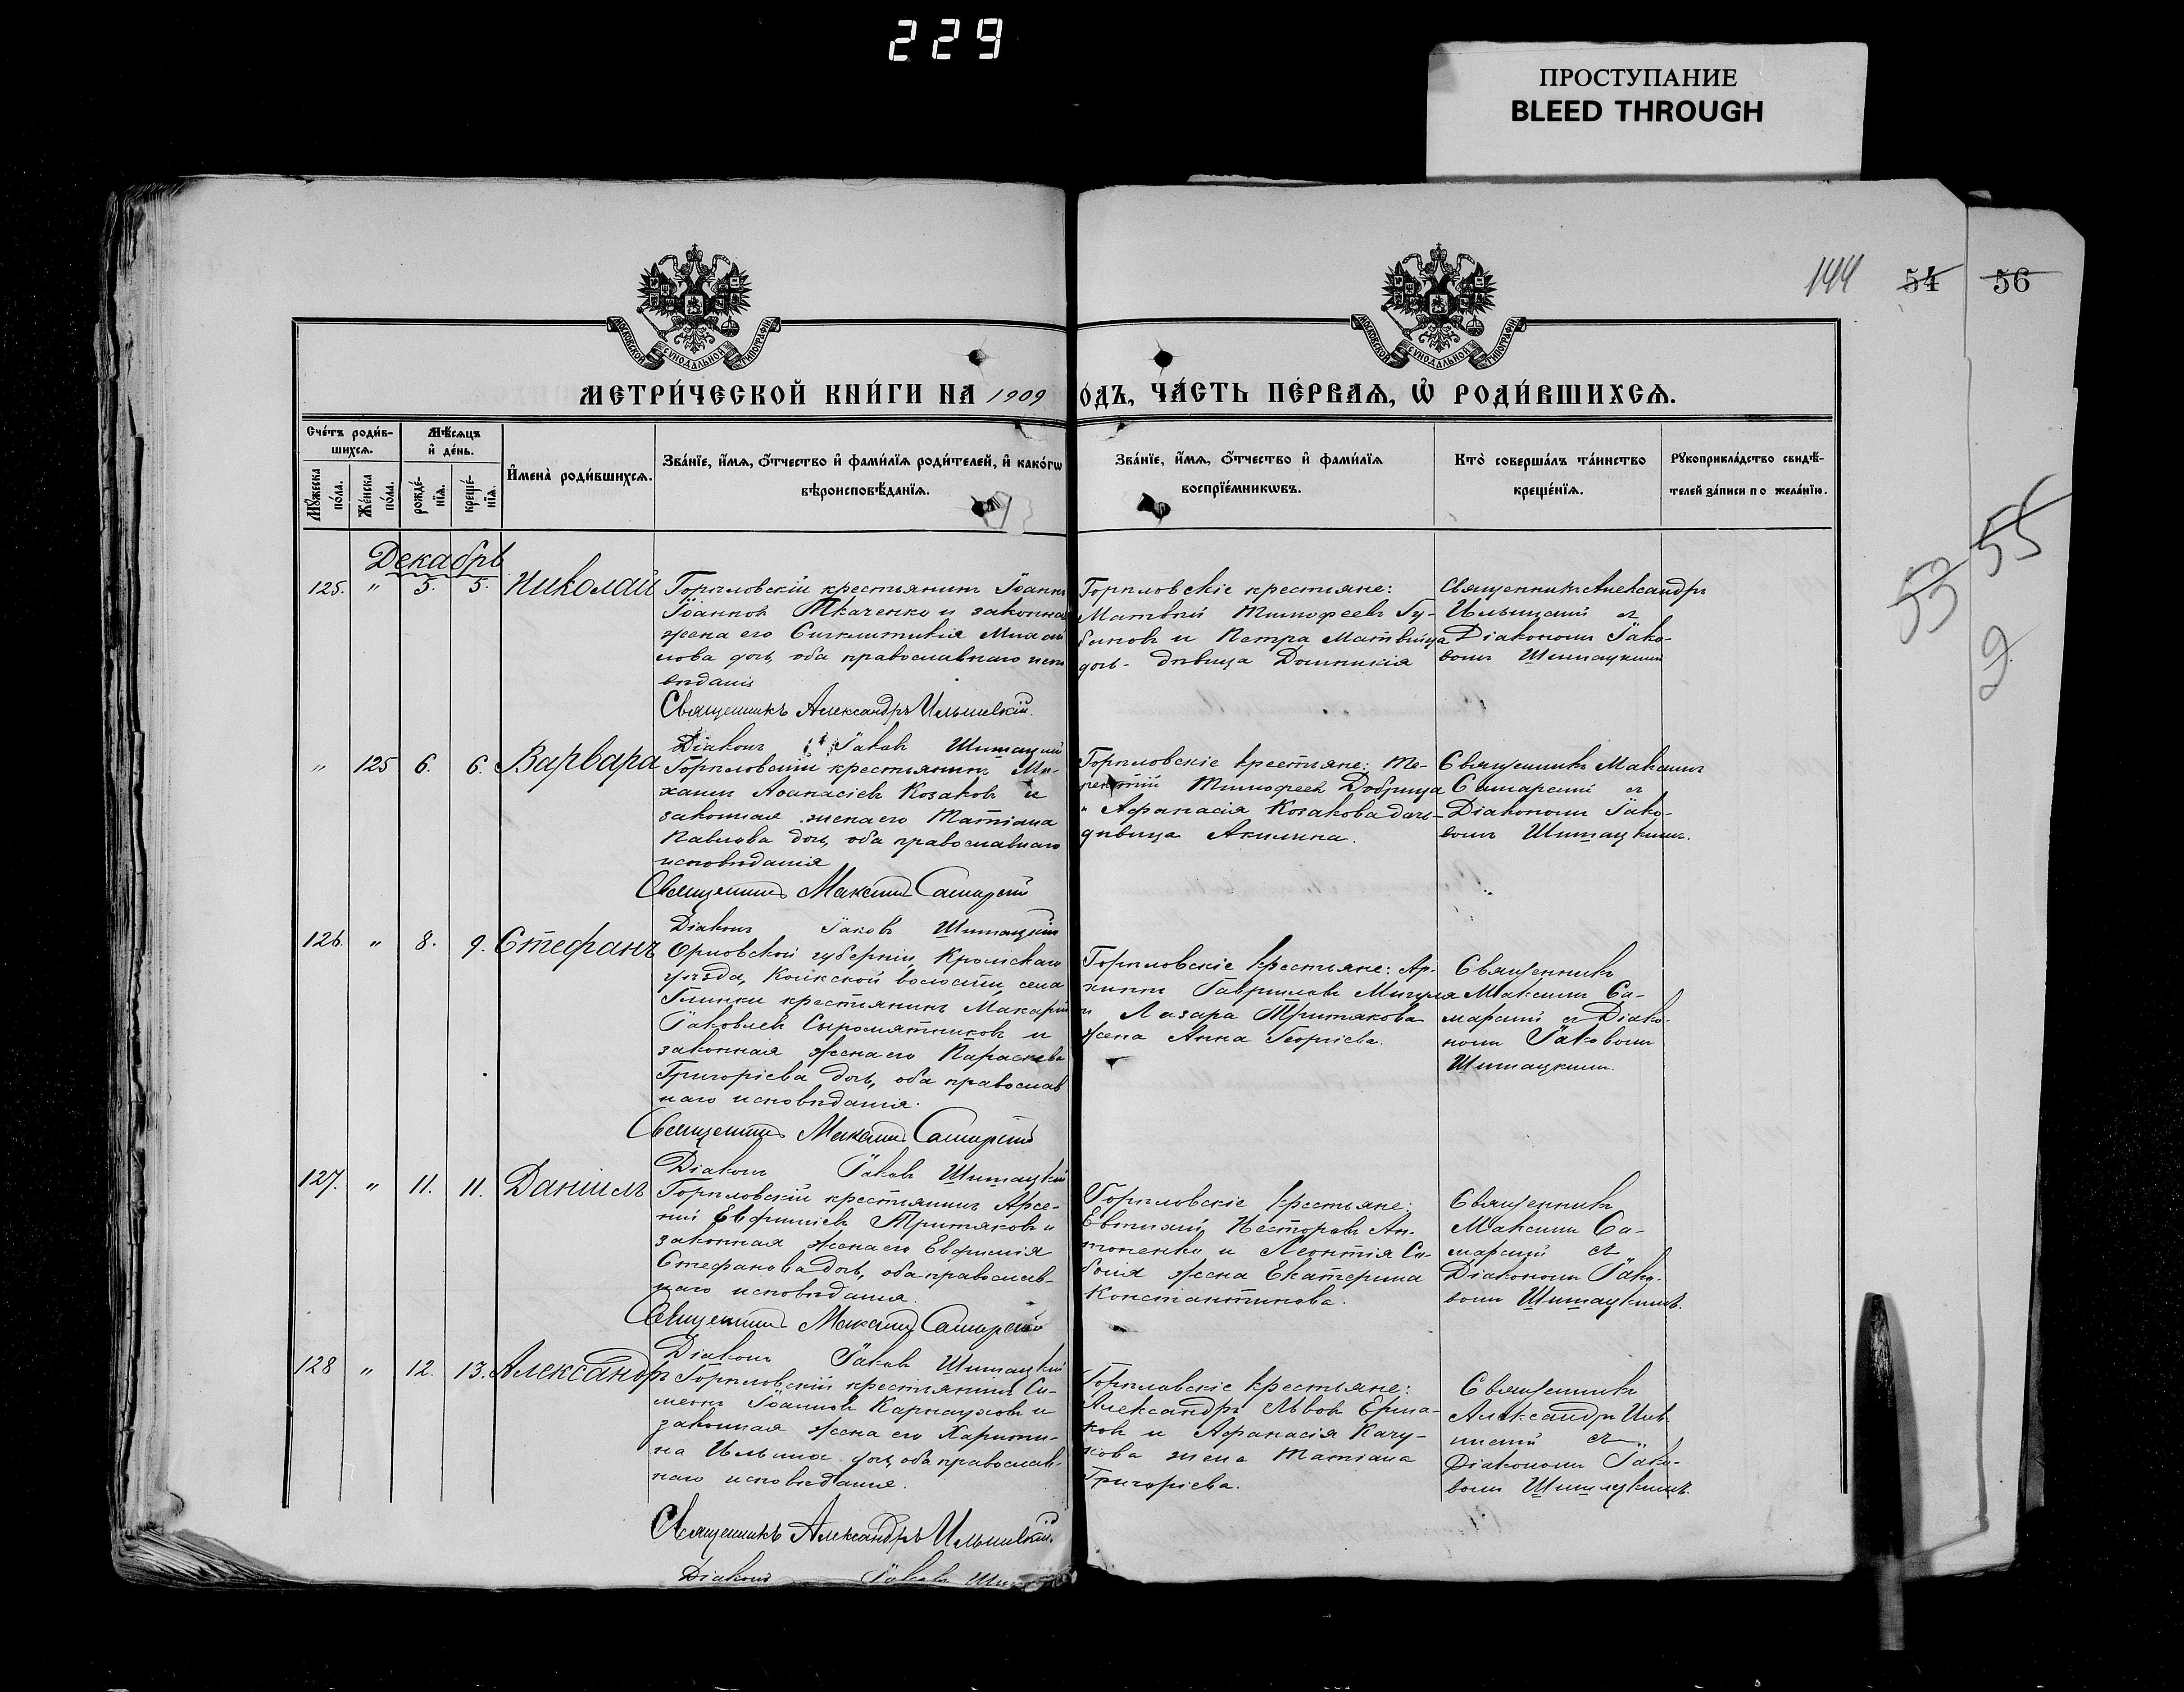 229
ПРОСТУПАНИЕ
BLEED THROUGH
144 54 56
МОСКОВСКОЙ СѴНОДАЛЬНОЙ ТИПОГРАФІИ
МОСКОВСКОЙ СѴНОДАЛЬНОЙ ТИПОГРАФІИ
МЕТРИ́ЧЕСКОЙ КНИ́ГИ НА 1909
ОДЪ, ЧА́СТЬ ПЕ́РВАѦ, Ѡ҆ РОДИ́ВШИХСѦ.
Сче́тъ роди́в-
шихсѧ.
Мꙋ́жеска
по́ла.
Же́нска
по́ла.
Мѣ́сѧцъ
и҆ де́нь.
рожде́-
нїѧ.
креще́-
нїѧ.
И҆мена̀ роди́вшихсѧ.
Зва́нїе, и҆́мѧ, ѻ҆́тчество и҆ фами́лїѧ роди́телей, и҆ како́гѡ
вѣроисповѣ́данїѧ.
Зва́нїе, и҆́мѧ, ѻ҆́тчество и҆ фами́лїѧ
воспрїе́мникѡвъ.
Кто̀ соверша́лъ та́инство
креще́нїѧ.
Рꙋкоприкла́дство свидѣ́-
телей за́писи по жела́нїю.
53 55
9
Декабрь
125. " 5. 5. Николай
Гориловскій крестьянинъ Іоаннъ
Іоанновъ Ткаченко и законная
жена его Синклитикія Михаи
лова дочь, оба православнаго испо
вѣданія
Священникъ Александръ Ильинскій.
Діаконъ Іаковъ Шишацкій
Гориловскіе крестьяне:
Матвѣй Тимофеевъ Гу-
биновъ и Петра Матвѣица
дочь - дѣвица Домникія
Священникъ Александръ
Ильинскій съ
Діакономъ Іако-
вомъ Шишацкимъ
" 125 6. 6. Варвара
Гориловскій крестьянинъ Ми-
хаилъ Аѳанасіевъ Козаковъ и
законная жена его Татіана
Павлова дочь, оба православнаго
исповѣданія
Священникъ Максимъ Самарскій
Діаконъ Іаковъ Шишацкій
Гориловскіе крестьяне: Те-
рентій Тимофеевъ Добрица
" Афанасія Козакова дочь-
дѣвица Акилина.
Священникъ Максимъ
Самарскій съ
Діакономъ Іако-
вомъ Шишацкимъ.
126. " 8. 9. Стефанъ
Орловской губерніи, Кромскаго
уѣзда, волости, села
Глинки крестьянинъ Макарій
Іаковлевъ Сыромятниковъ и
законная жена его Параскева
Григоріева дочь, оба православ
наго исповѣданія.
Священникъ Максимъ Самарскій
Діаконъ Іаковъ Шишацкій
Гориловскіе крестьяне: Ар-
хиппъ Гавриловъ Мигуля
и Лазара Тритякова
жена Анна Георгіева.
Священникъ
Максимъ Са-
марскій съ Діако-
номъ Іаковомъ
Шишацкимъ.
127. " 11. 11. Даніилъ
Гориловскій крестьянинъ Арсе-
ній Евфиміевъ Тритяковъ и
законная жена его Евфимія
Стефанова дочь, оба православ-
наго исповѣданія.
Священникъ Максимъ Самарскій
Діаконъ Іаковъ Шишацкій
Гориловскіе крестьяне:
Евтихій Несторовъ Ан-
тоненко и Леонтія Са-
боля жена Екатерина
Константинова.
Священникъ
Максимъ Са-
марскій съ
Діакономъ Іако-
вомъ Шишацкимъ.
128 " 12. 13. Александръ
Гориловскій крестьянинъ Си-
меонъ Іоанновъ Карнауховъ и
законная жена его Харити-
на Ильина дочь, оба православ-
наго исповѣданія.
Священникъ Александръ Ильинскій.
Діаконъ Іаковъ
Гориловскіе крестьяне:
Александръ Львовъ Ерма-
ковъ и Афанасія Качу-
кова жена Татіана
Григоріева.
Священникъ
Александръ Иль-
инскій съ
Діакономъ Іако-
вомъ Шишацкимъ.